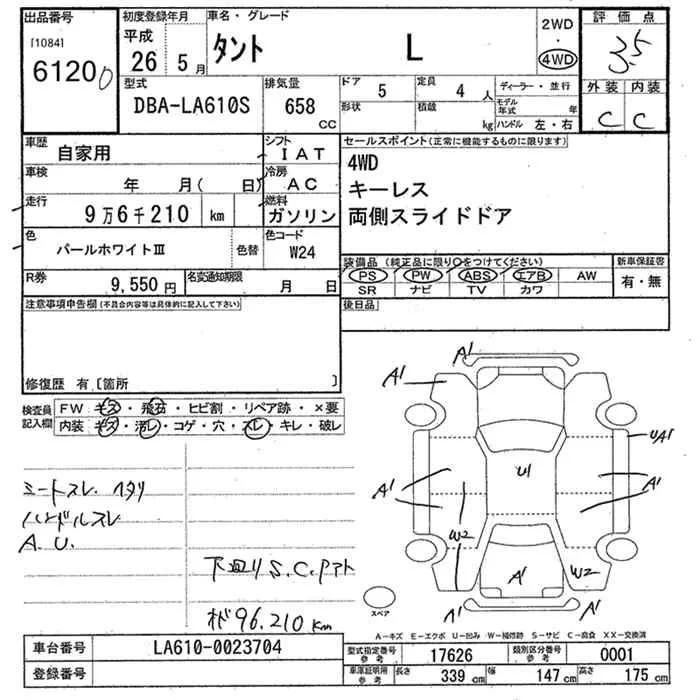 出品番号 [1084] 61200
初度登録年月 平成 26 5月
車名・グレード タント L
2WD・4WD
評価点 3.5
外装 内装
C C
型式 DBA-LA610S
排気量 658 CC
ドア 5 定員 4人
形状 積載 kg
ディーラー・並行
モデル年式 年
ハンドル 左・右
車歴 自家用
シフト IAT
車検 年 月( 日)
冷房 AC
走行 9万6千210 km
燃料 ガソリン
色 パールホワイトⅢ 色替
色コード W24
R券 9,550円
名変通知期限 月 日
セールスポイント(正常に機能するものに限ります)
4WD
キーレス
両側スライドドア
装備品(純正品に限り○をつけてください)
新車保証書
PS PW ABS エアB AW
有・無
SR ナビ TV カワ
後日品
注意事項申告欄(不具合内容等は具体的に記入して下さい)
修復歴 有 [箇所 ]
検査員記入欄
FW キズ・飛石・ヒビ割・リペア跡・×要
内装 キズ・汚レ・コゲ・穴・スレ・キレ・破レ
シートスレ ヘタリ
ハンドルスレ
A.U.
下廻りS.C.アト
96.210km
A1
A1
UA1
U1
A1
A1
W2
W2
A1
A1
スペア
A-キズ E-エクボ U-凹み W-補修跡 S-サビ C-腐食 XX-交換済
車台番号 LA610-0023704
登録番号
型式指定番号参考 17626
類別区分番号参考 0001
車庫証明用参考 長さ 339cm 幅 147cm 高さ 175cm